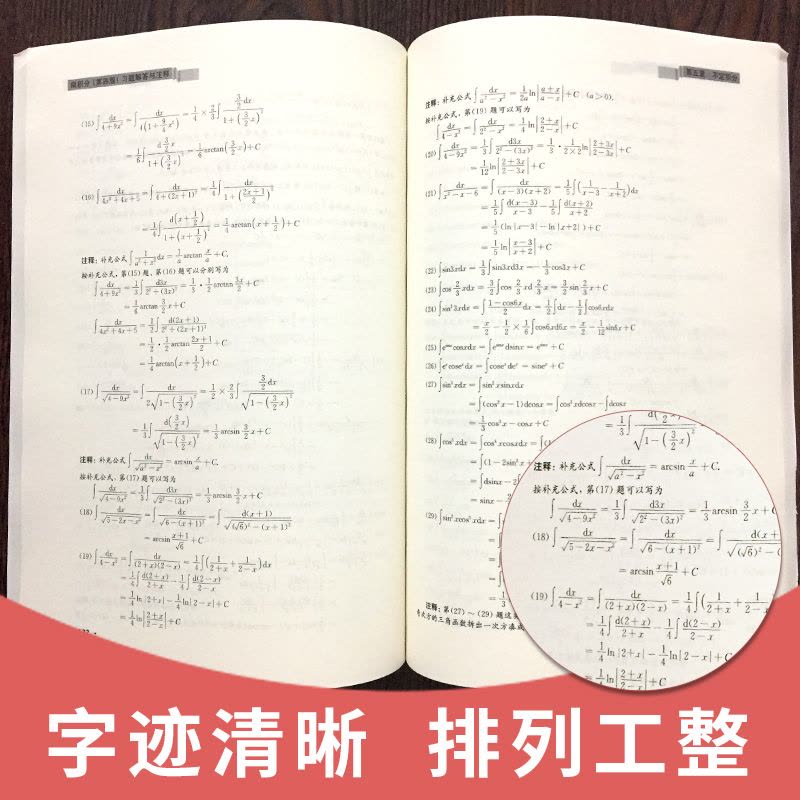 微积分(第四版)习题解答与注释
(15) ∫dx/(4+9x²) = ∫dx/(4(1+(9/4)x²)) = 1/4 × 2/3 ∫(3/2)dx/(1+((3/2)x)²)
= 1/6 ∫d(3/2)x/(1+((3/2)x)²) = 1/6 arctan((3/2)x)+C
(16) ∫dx/(4x²+4x+5) = ∫dx/(4+(2x+1)²) = 1/4 ∫dx/(1+((2x+1)/2)²)
= 1/4 ∫d(x+1/2)/(1+(x+1/2)²) = 1/4 arctan(x+1/2)+C
注释: 补充公式 ∫1/(a²+x²)dx = 1/a arctan x/a +C,
按补充公式, 第(15)题、第(16)题可以分别写为
∫dx/(4+9x²) = 1/3 ∫d3x/(2²+(3x)²) = 1/3 · 1/2 arctan 3x/2 +C
= 1/6 arctan 3/2 x+C
∫dx/(4x²+4x+5) = 1/2 ∫d(2x+1)/(2²+(2x+1)²)
= 1/2 · 1/2 arctan (2x+1)/2 +C
= 1/4 arctan(x+1/2)+C
(17) ∫dx/√(4-9x²) = ∫dx/(2√(1-((3/2)x)²)) = 1/2 × 2/3 ∫(3/2)dx/√(1-((3/2)x)²)
= 1/3 ∫d((3/2)x)/√(1-((3/2)x)²) = 1/3 arcsin 3/2 x+C
注释: 补充公式 ∫dx/√(a²-x²) = arcsin x/a +C,
按补充公式, 第(17)题可以写为
∫dx/√(4-9x²) = 1/3 ∫d3x/√(2²-(3x)²) = 1/3 arcsin 3/2 x+C
(18) ∫dx/√(5-2x-x²) = ∫dx/√(6-(x+1)²) = ∫d(x+1)/√((√6)²-(x+1)²)
= arcsin (x+1)/√6 +C
(19) ∫dx/(4-x²) = ∫dx/((2+x)(2-x)) = 1/4 ∫(1/(2+x) + 1/(2-x))dx
= 1/4 ∫d(2+x)/(2+x) - 1/4 ∫d(2-x)/(2-x)
= 1/4 ln|2+x| - 1/4 ln|2-x|+C
= 1/4 ln|(2+x)/(2-x)|+C
第五章 不定积分
注释: 补充公式 ∫dx/(a²-x²) = 1/2a ln|(a+x)/(a-x)|+C (a>0),
按补充公式, 第(19)题可以写为
∫dx/(4-x²) = ∫dx/(2²-x²) = 1/4 ln|(2+x)/(2-x)|+C
(20) ∫dx/(4-9x²) = 1/3 ∫d3x/(2²-(3x)²) = 1/3 · 1/(2×2) ln|(2+3x)/(2-3x)|+C
= 1/12 ln|(2+3x)/(2-3x)|+C
(21) ∫dx/(x²-x-6) = ∫dx/((x-3)(x+2)) = 1/5 ∫(1/(x-3) - 1/(x+2))dx
= 1/5 ∫d(x-3)/(x-3) - 1/5 ∫d(x+2)/(x+2)
= 1/5 (ln|x-3|-ln|x+2|)+C
= 1/5 ln|(x-3)/(x+2)|+C
(22) ∫sin3xdx = 1/3 ∫sin3xd3x = -1/3 cos3x+C
(23) ∫cos 2/3 xdx = 3/2 ∫cos 2/3 xd 2/3 x = 3/2 sin 2/3 x+C
(24) ∫sin²3xdx = ∫(1-cos6x)/2 dx = 1/2 ∫dx - 1/2 ∫cos6xdx
= x/2 - 1/2 × 1/6 ∫cos6xd6x = x/2 - 1/12 sin6x+C
(25) ∫e^sinx cosxdx = ∫e^sinx dsinx = e^sinx+C
(26) ∫eˣcoseˣdx = ∫coseˣdeˣ = sineˣ+C
(27) ∫sin³xdx = ∫sin²xsinxdx
= ∫(cos²x-1)dcosx = ∫cos²xdcosx - ∫dcosx
= 1/3 cos³x - cosx+C
(28) ∫cos⁵xdx = ∫cos⁴xcosxdx = ∫(1
= ∫(1-2sin²x+
= ∫dsinx-
= sinx-
(29) ∫sin²xcos⁵xdx =
注释: 第(27)～(29)题这
奇次方的三角函数拆出一次方凑成
注释: 补充公式 ∫dx/√(a²-x²) = arcsin x/a +C,
按补充公式, 第(17)题可以写为
∫dx/√(4-9x²) = 1/3 ∫d3x/√(2²-(3x)²) = 1/3 arcsin 3/2 x+C
(18) ∫dx/√(5-2x-x²) = ∫dx/√(6-(x+1)²) = ∫d(x+1)/√((√6)²-(
= arcsin (x+1)/√6 +C
(19) ∫dx/(4-x²) = ∫dx/((2+x)(2-x)) = 1/4 ∫(1/(2+x) + 1/(2-x)
= 1/4 ∫d(2+x)/(2+x) - 1/4 ∫d(2-x)/(2-x)
= 1/4 ln|2+x| - 1/4 ln|2-x|+C
= 1/4 ln|(2+x)/(2-x)|+C
字迹清晰 排列工整